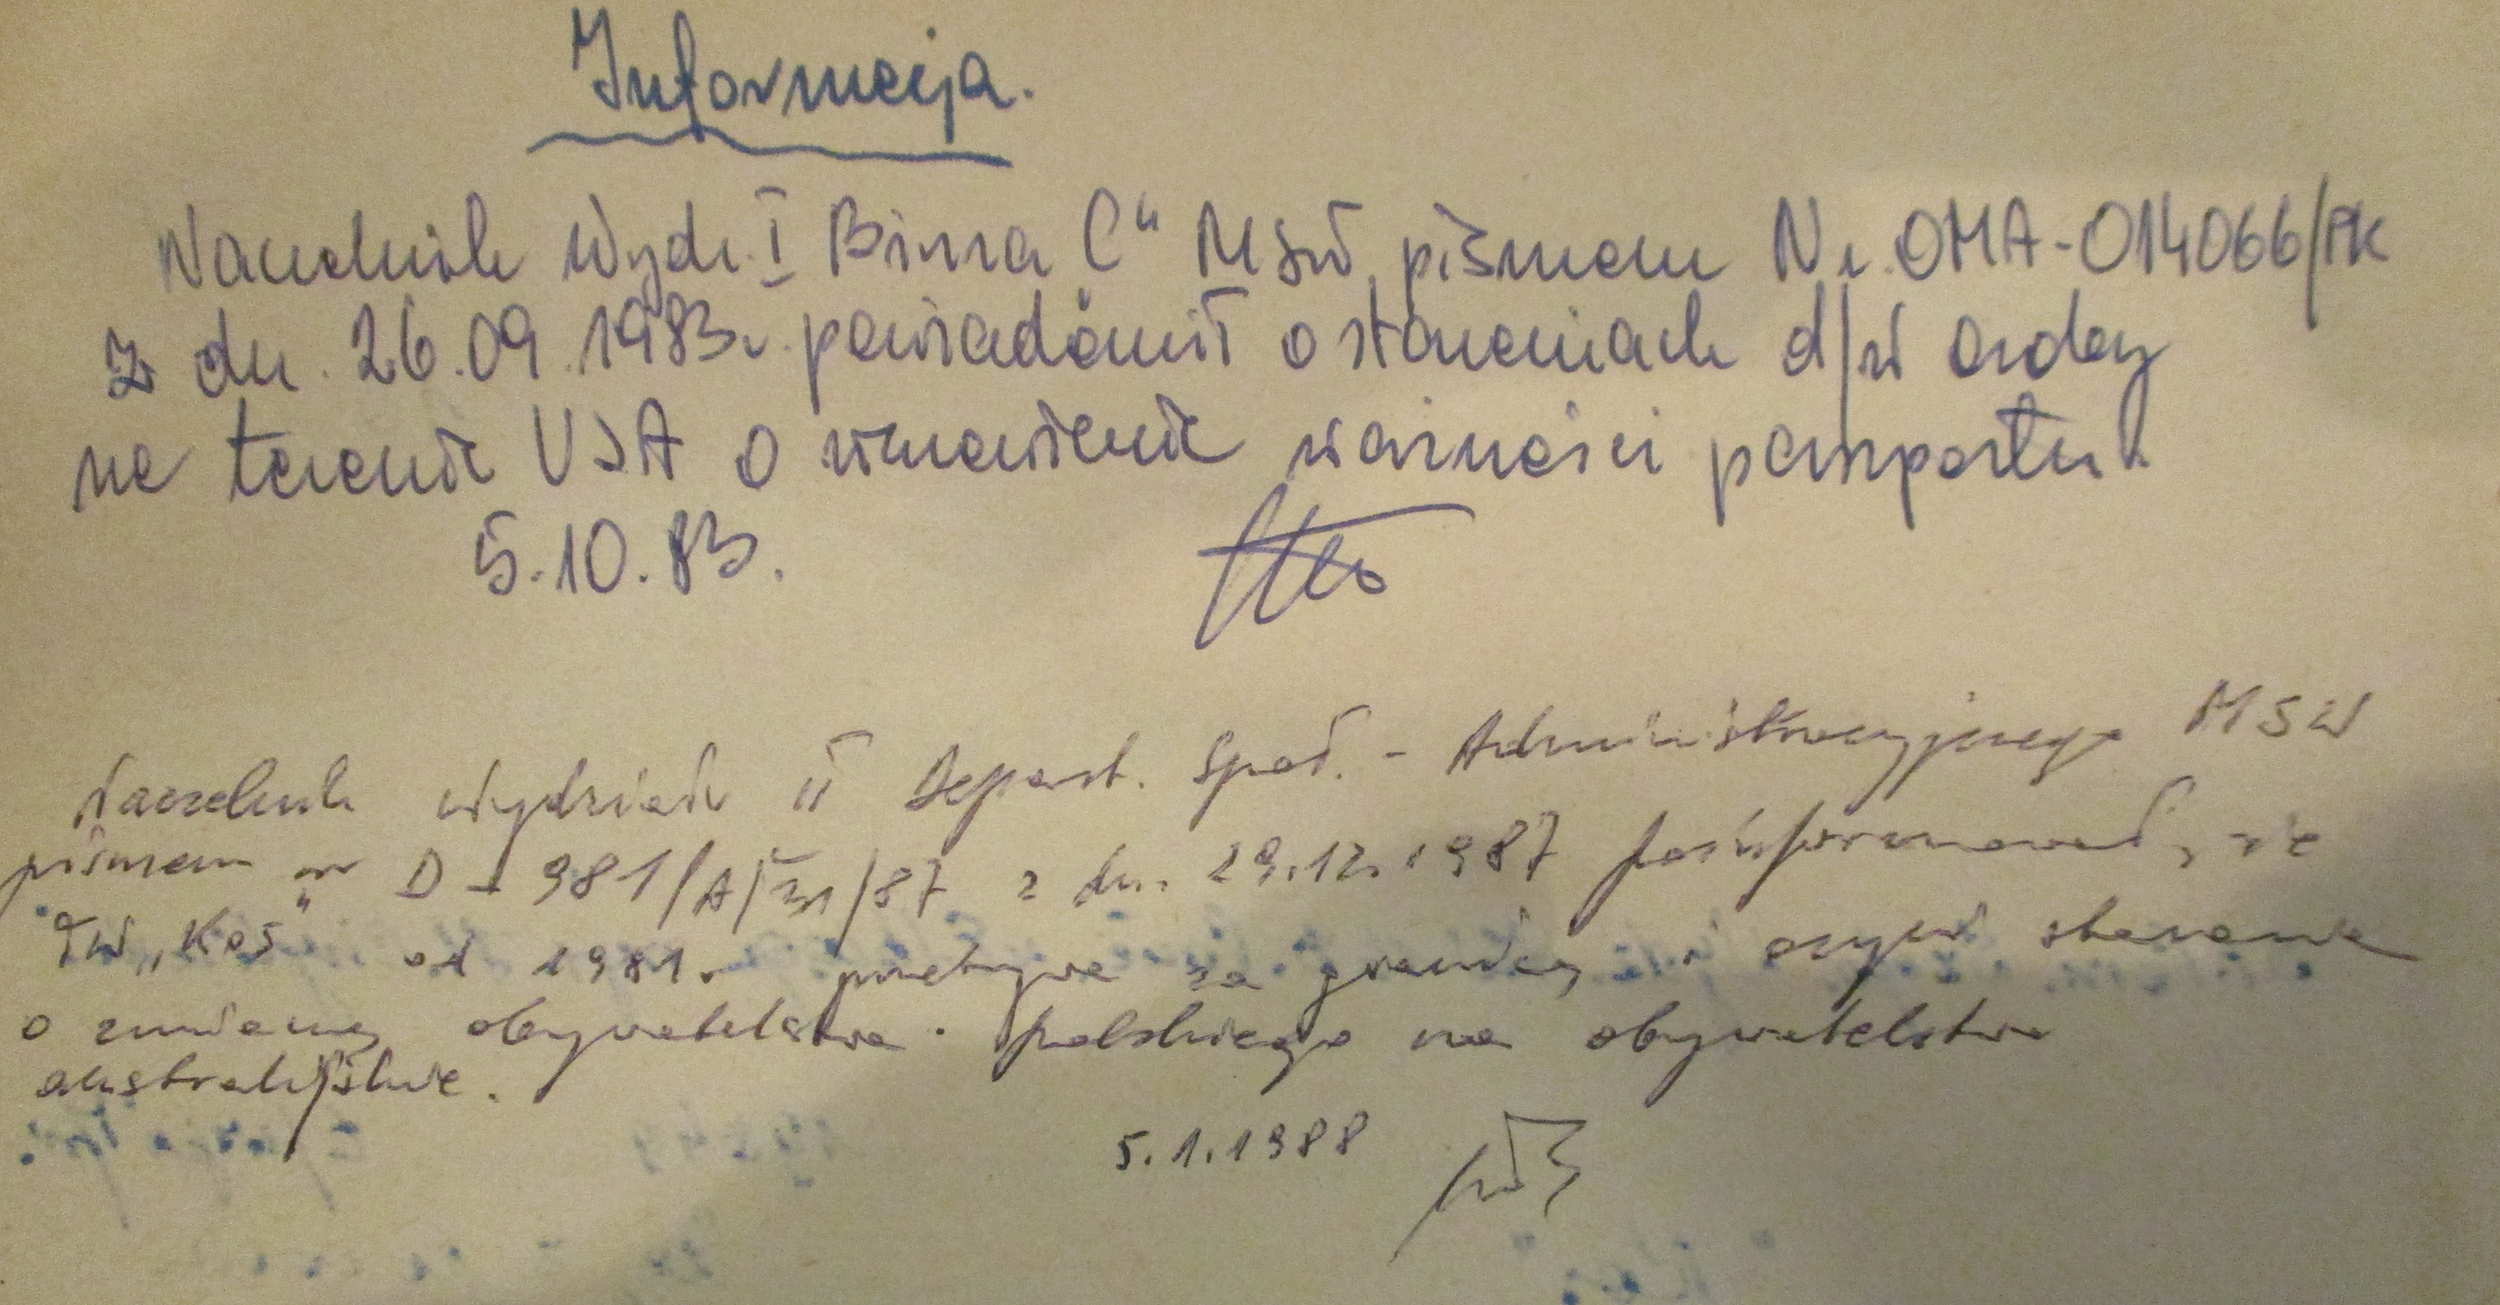 Informacja.
Naczelnik Wydz. I Biura C" MSW pismem Nr. OMA-014066/PK
z dn. 26.09.1983r. powiadomił o staraniach d/w osoby
na terenie USA o wznowienie ważności paszportu.
5.10.83.
Naczelnik Wydziału II Depart. Społ. - Administracyjnego MSW
pismem nr D-981/A/31/87 z dn. 29.12.1987 poinformował, że
TW „Kos" od 1981r przebywa za granicą i czyni starania
o zmianę obywatelstwa polskiego na obywatelstwo
australijskie.
5.1.1988